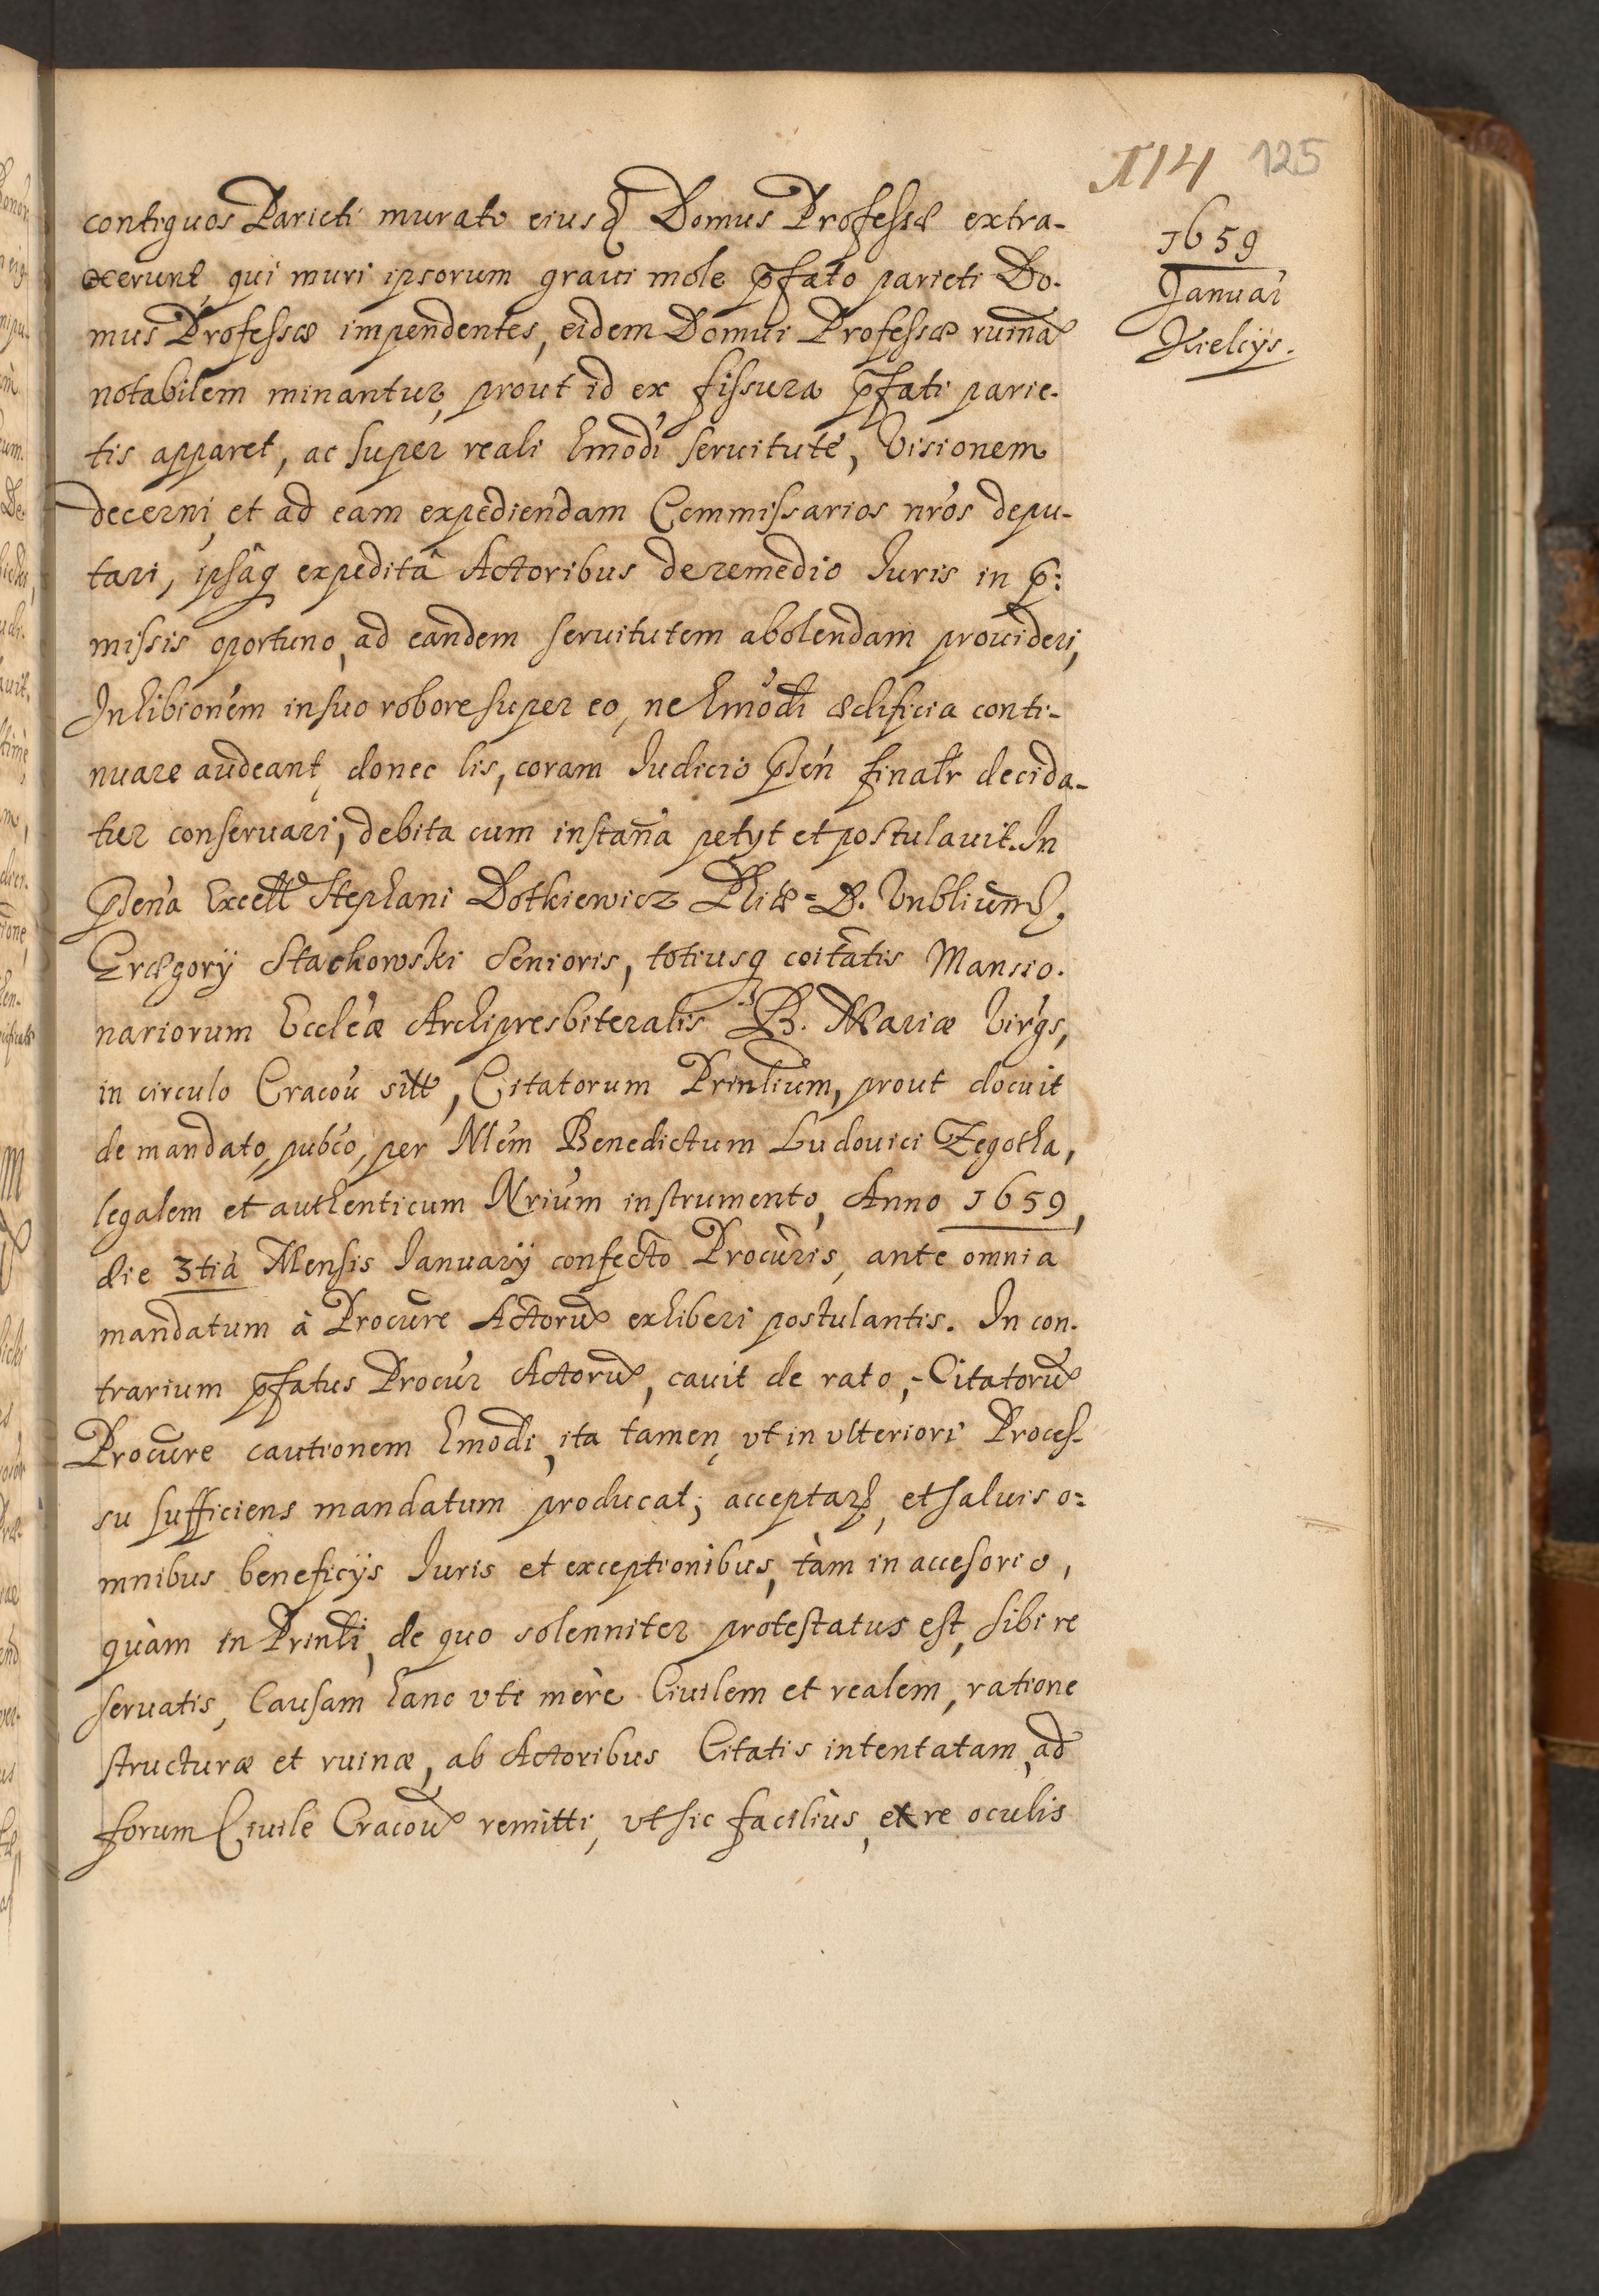 114 125
1659
Januar
Kielcÿs.
contiguos Parieti murato eiusq̃ Domus Professæ extra-
xerunt, qui muri ipsorum graui mole p̄fato parieti Do-
mus Professæ impendentes, eidem Domui Professæ ruinã
notabilem minantur, prout id ex fissura p̄fati parie-
tis apparet, ac super reali hmõdi seruitute, Visionem
decerni, et ad eam expediendam Commissarios nr̃os depu-
tari, ipsâq expeditâ Actoribus de remedio Iuris in p̄:
missis oportuno, ad eandem seruitutem abolendam prouideri,
Inhibiõnem in suo robore super eo, ne hmõdi ædificia conti-
nuare audeant, donec lis, coram Iudicio p̄sẽn finalr̃ decida-
tur conseruari, debita cum instañа petyt et postulauit. In
p̄sẽna Excell Stephani Dotkiewicz Phiæ D.
Grægorÿ Stachowski Senioris, totiusq coitãtis Mansio-
nariorum Ecclẽæ Archipresbiteralis B. Mariæ Virg̃s,
in circulo Cracoũ sitæ, Citatorum Prinlium, prout docuit
de mandato, pubco, per Nlẽm Benedictum Ludouici Zegotha,
legalem et authenticum Nriũm instrumento, Anno 1659,
die 3tiâ Mensis Ianuarÿ confecto Procur̃is, ante omnia
mandatum à Procur̃e Actorũ exhiberi postulantis. In con-
trarium p̄fatus Procur̃ Actorũ, cauit de rato, Citatorũ
Procur̃e cautionem hmõdi, ita tamen, vt in vlteriori Proces-
su sufficiens mandatum producat, acceptañ, et saluis o=
mnibus beneficÿs Iuris et exceptionibus, tàm in accesorio,
quàm in Prinli, de quo solenniter protestatus est, sibi re
seruatis, Causam hanc vti mèrè Ciuilem et realem, ratione
structuræ et ruinæ, ab Actoribus Citatis intentatam, ad
forum Ciuile Cracoũ remitti, vt sic faciliùs, et re oculis